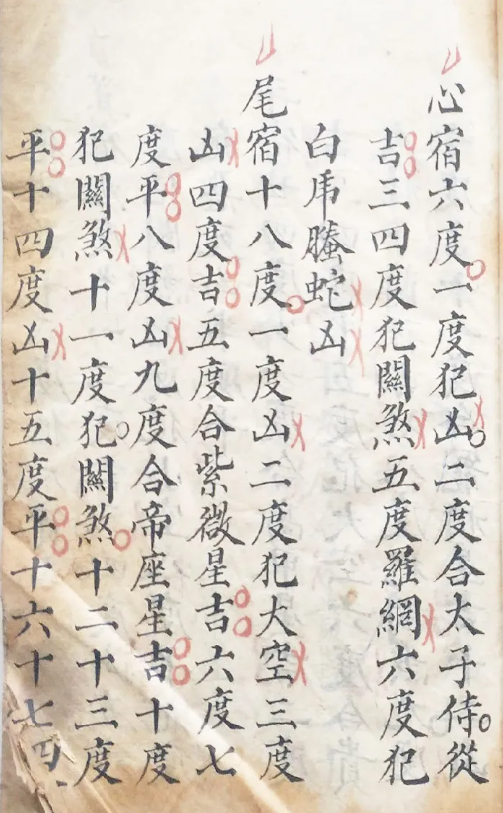 心宿六度一度犯凶二度合太子侍從
吉三四度犯關煞五度羅網六度犯
白虎螣蛇凶
尾宿十八度一度凶二度犯大空三度
凶四度吉五度合紫微星吉六度七
度平八度凶九度合帝座星吉十度
犯關煞十一度犯關煞十二十三度
平十四度凶十五度平十六十七